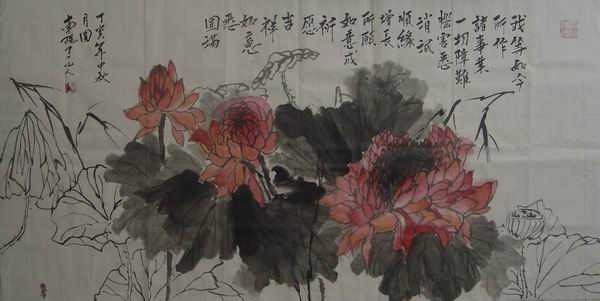 我等如今
所作
諸事業
一切障難
害悉
消泯
順緣
增長
所願
如意成
祈
愿
吉
祥
如意
悉
圓滿
丁亥年中秋
月圆
山人